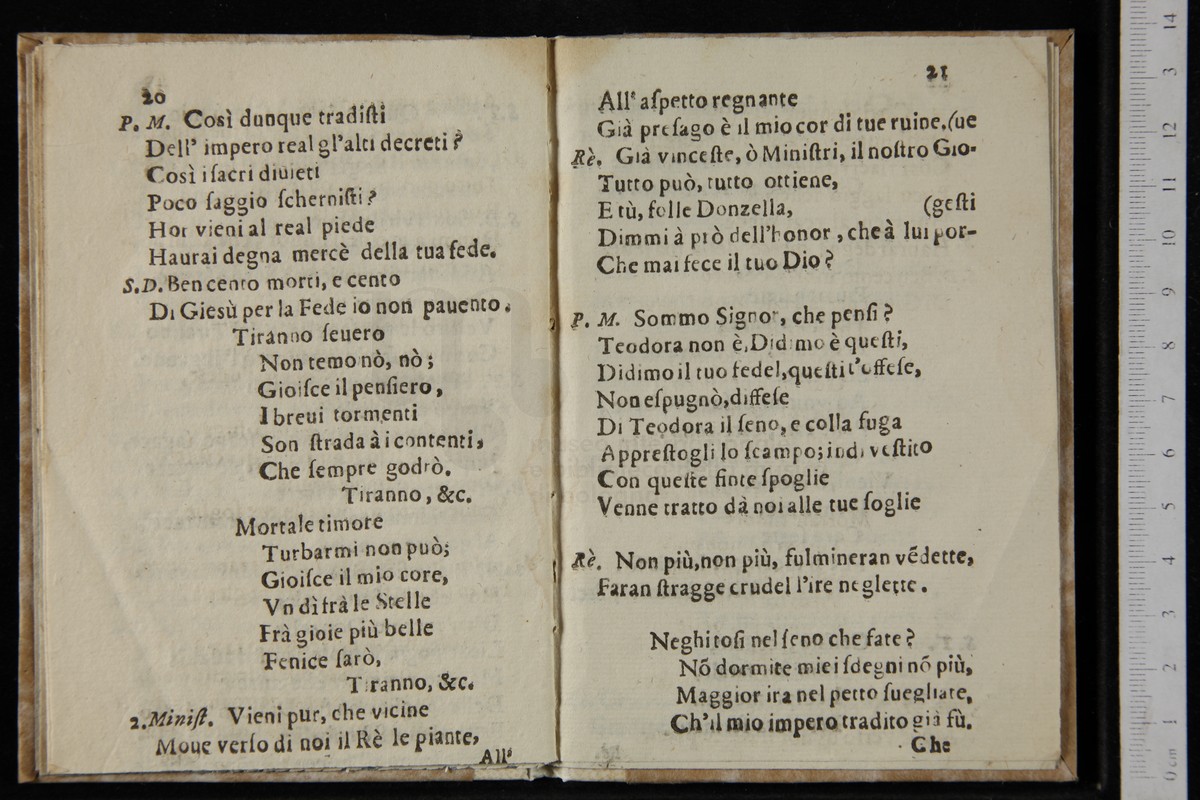 20
P. M. Così dunque tradiſti
Dell' impero real gl'alti decreti?
Così i ſacri diuieti
Poco ſaggio ſcherniſti?
Hor vieni al real piede
Haurai degna mercè della tua fede.
S.D. Ben cento morti, e cento
Di Giesù per la Fede io non pauento.
Tiranno ſeuero
Non temo nò, nò;
Gioiſce il penſiero,
I breui tormenti
Son ſtrada à i contenti,
Che ſempre godrò.
Tiranno, &c.
Mortale timore
Turbarmi non può;
Gioiſce il mio core,
Vn dì frà le Stelle
Frà gioie più belle
Fenice ſarò,
Tiranno, &c.
2. Miniſt. Vieni pur, che vicine
Moue verſo di noi il Rè le piante,
All'
21
All' aſpetto regnante
Già preſago è il mio cor di tue ruine. (ue
Rè. Già vinceſte, ò Miniſtri, il noſtro Gio-
Tutto può, tutto ottiene,
E tù, folle Donzella, (geſti
Dimmi à prò dell'honor, che à lui por-
Che mai fece il tuo Dio?
P. M. Sommo Signor, che penſi?
Teodora non è, Didimo è queſti,
Didimo il tuo fedel, queſti t'offeſe,
Non eſpugnò, diffeſe
Di Teodora il ſeno, e colla fuga
Appreſtogli lo ſcampo; indi veſtito
Con queſte finte ſpoglie
Venne tratto dà noi alle tue ſoglie
Rè. Non più, non più, fulmineran vẽdette,
Faran ſtragge crudel l'ire neglette.
Neghitoſi nel ſeno che fate?
Nõ dormite miei ſdegni nõ più,
Maggior ira nel petto ſuegliate,
Ch'il mio impero tradito già fù.
Che